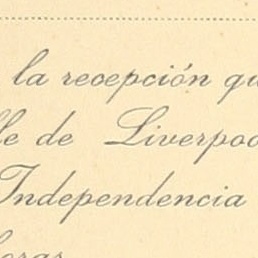 la recepción qu
lle de Liverpoo
Independencia
horas